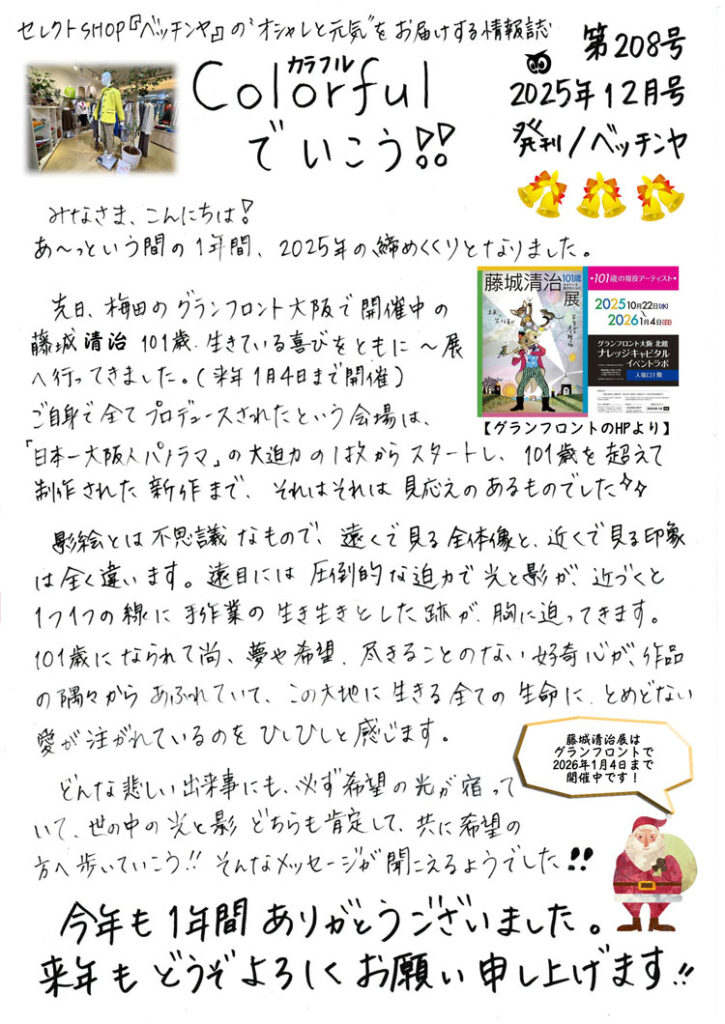 セレクトSHOP『ベッチンヤ』の“オシャレと元気”をお届けする情報誌
第208号
カラフル
Colorful
でいこう!!
2025年12月号
発刊/ベッチンヤ
みなさま、こんにちは!
あ〜っという間の1年間、2025年の締めくくりとなりました。
先日、梅田のグランフロント大阪で開催中の
藤城清治 101歳、生きている喜びをともに〜展
へ行ってきました。(来年1月4日まで開催)
ご自身で全てプロデュースされたという会場は、
藤城清治
101歳
展
•101歳の現役アーティスト•
2025 10月22日(水)
2026 1月4日(日)
グランフロント大阪 北館
ナレッジキャピタル
イベントラボ
入場口1階
【グランフロントのHPより】
「日本一大阪人パノラマ」の大迫力の1枚からスタートし、101歳を超えて
制作された新作まで、それはそれは見応えのあるものでした✨
影絵とは不思議なもので、遠くで見る全体像と、近くで見る印象
は全く違います。遠目には圧倒的な迫力で光と影が、近づくと
1つ1つの線に手作業の生き生きとした跡が、胸に迫ってきます。
101歳になられて尚、夢や希望、尽きることのない好奇心が、作品
の隅々からあふれていて、この大地に生きる全ての生命に、とめどない
愛が注がれているのをひしひしと感じます。
藤城清治展は
グランフロントで
2026年1月4日まで
開催中です!
どんな悲しい出来事にも、必ず希望の光が宿って
いて、世の中の光と影どちらも肯定して、共に希望の
方へ歩いていこう!!そんなメッセージが聞こえるようでした!!
今年も1年間ありがとうございました。
来年もどうぞよろしくお願い申し上げます!!